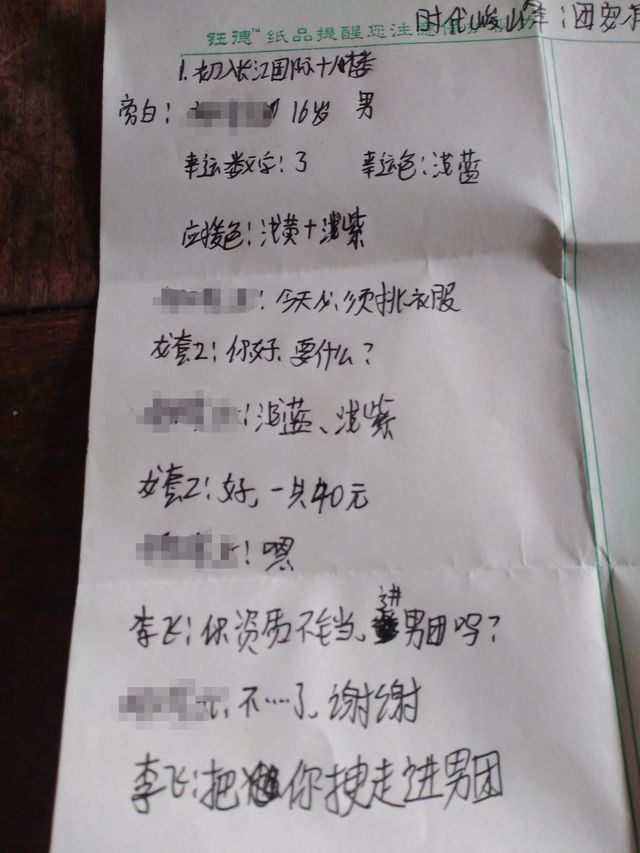 钰德™ 纸品提醒您注意
时代峰峻
1.初入长江国际十八楼
旁白： 16岁 男
幸运数字：3 幸运色：浅蓝
应援色：浅黄+浅紫
：今天必须挑衣服
龙套2：你好，要什么？
：浅蓝、浅紫
龙套2：好，一共40元
：嗯
李飞：你资质不错当，进男团吗？
：不……了，谢谢
李飞：把你拽走进男团